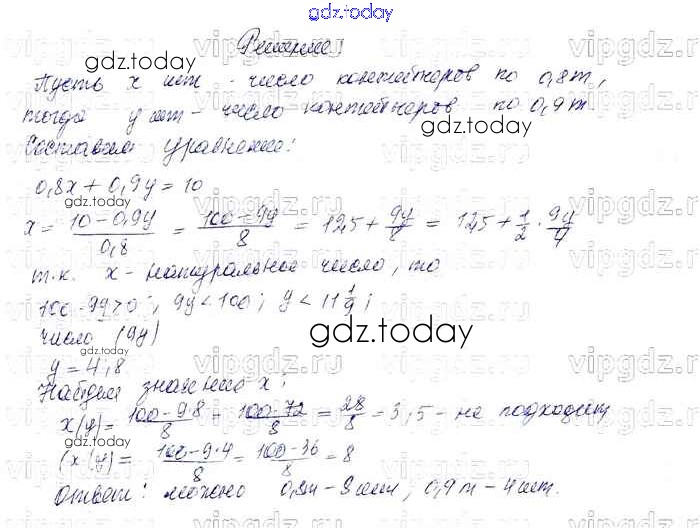 gdz.today
Решение:
gdz.today
Пусть x шт - число контейнеров по 0,8т,
тогда y шт - число контейнеров по 0,9т
gdz.today
Составим уравнение:
0,8x + 0,9y = 10
gdz.today
x = (10 - 0,9y)/0,8 = (100 - 9y)/8 = 12,5 + 9y/8 = 12,5 + 1/2 · 9y/4
т.к. x - натуральное число, то
100 - 9y > 0; 9y < 100; y < 11 1/9;
число (9y)
gdz.today
gdz.today
y = 4; 8
Найдем значение x:
x(y) = (100 - 9·8)/8 = (100 - 72)/8 = 28/8 = 3,5 - не подходит
gdz.today
(x(y) = (100 - 9·4)/8 = (100 - 36)/8 = 8
gdz.today
Ответ: можно 0,8т - 8 шт, 0,9т - 4 шт.
vipgdz.ru